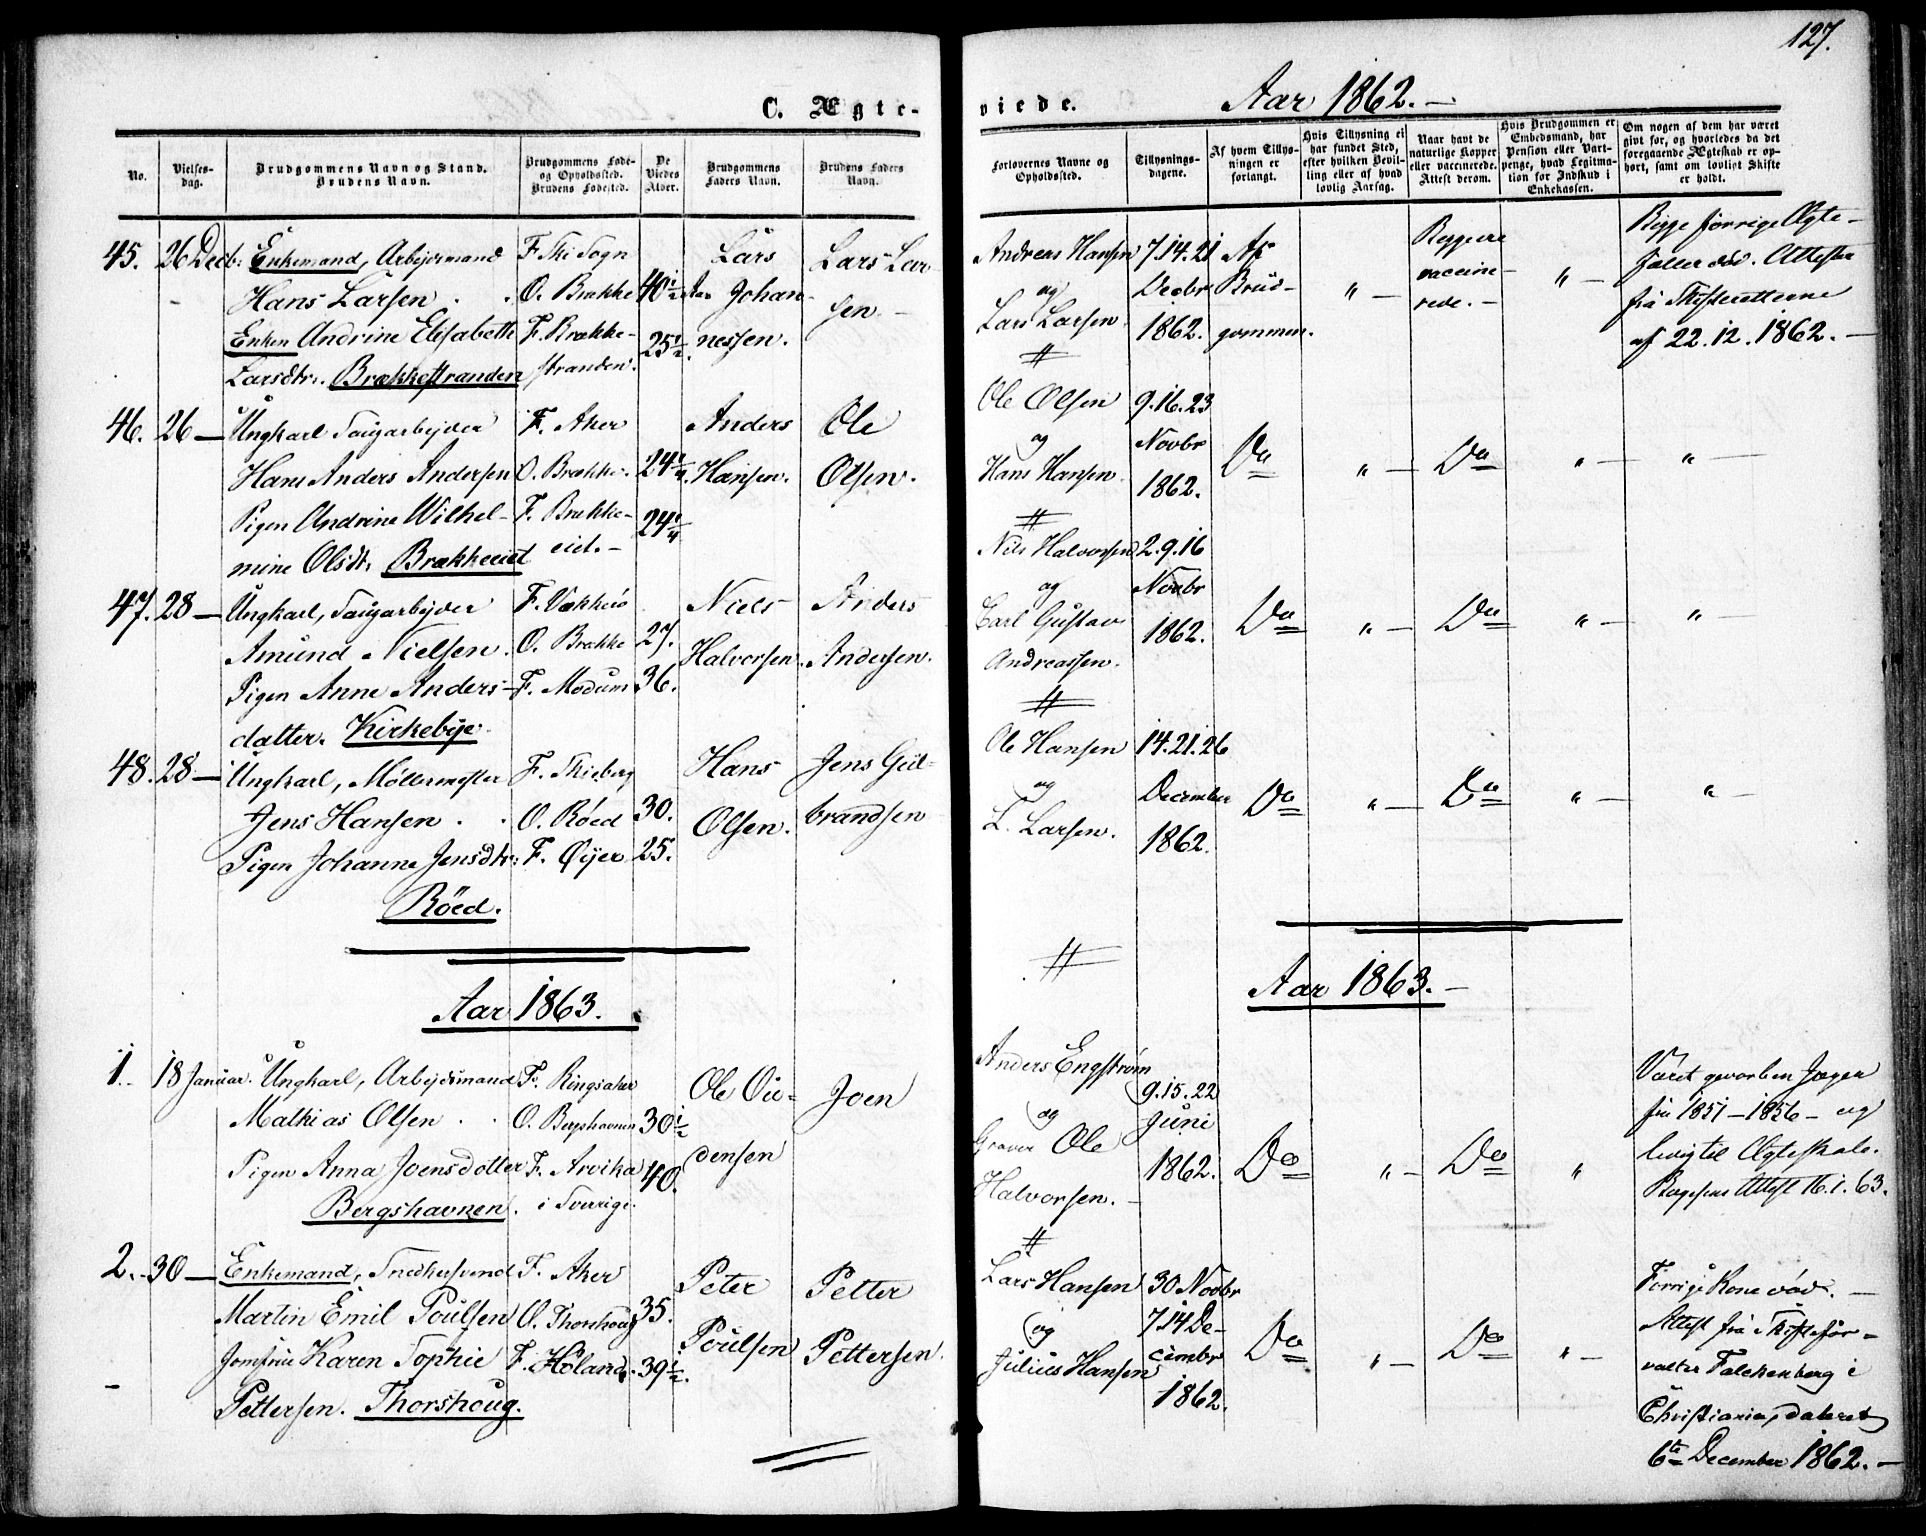 127.
C. Ægte-
viede. Aar 1862.–
No.
Vielses-
dag.
Brudgommens Navn og Stand.
Brudens Navn.
Brudgommens Føde-
og Opholdssted.
Brudens Fødested.
De
Viedes
Alder.
Brudgommens
Faders Navn.
Brudens Faders
Navn.
Forlovernes Navne og
Opholdssted.
Tillysnings-
dagene.
Af hvem Tillys-
ningen er
forlangt.
Hvis Tillysning ei
har fundet Sted,
efter hvilken Bevil-
ling eller af hvad
lovlig Aarsag.
Naar havt de
naturlige Kopper
eller vaccinerede.
Attest derom.
Hvis Brudgommen er
Embedsmand, har
Pension eller Vart-
penge, hvad Legitima-
tion for Indskud i
Enkekassen.
Om nogen af dem har været
givt før, og hvorledes da det
foregaaende Ægteskab er op-
hørt, samt om lovligt Skifte
er holdt.
45. 26 Decbr. Enkemand, Arbejdsmand
Hans Larsen
Enken Andrine Elisabeth
Larsdtr. Brækkestranden
F. Ski Sogn
O. Brække
F. Brække-
stranden.
40 1/2
25 1/2
Lars
Johan-
nessen.
Lars Lar-
sen
Andreas Hansen
og
Lars Larsen
7.14.21
Decbr
1862.
Af
Brud-
gommen.
" –
Begge ere
vaccine-
rede. –
" –
Begge forrige Ægte-
fæller død. Attester
fra Skifteretterne
af 22.12.1862. –
46. 26 — Ungkarl Saugarbejder
Hans Anders Andersen
Pigen Andrine Wilhel-
mine Olsdtr. Brækkeeid
F. Aker
O. Brække
F. Brække-
eid. –
24 1/4
24 1/4
Anders
Hansen.
Ole
Olsen.
Ole Olsen
og
Hans Hansen.
9.16.23
Novbr
1862.
Do " – Do " – " –
47. 28 — Ungkarl, Saugarbejder
Amund Nielsen.
Pigen Anne Anders-
datter. Kirkebye.
F. Vækkerö
O. Brække
F. Modum
27.
36.
Niels
Halvorsen.
Anders
Andersen.
Nils Halvorsen
og
Carl Gustav
Andreassen.
2.9.16
Novbr
1862.
Do " – Do " – " –
48. 28 — Ungkarl, Møllermester
Jens Hansen
Pigen Johanne Jensdtr.
Röed.
F. Skieberg
O. Röed
F. Öyer
30.
25.
Hans
Olsen.
Jens Gul-
brandsen
Ole Hansen
og
L. Larsen.
14.21.26
December
1862.
Do " – Do " – " –
Aar 1863.
Aar 1863. –
1. 18 Januar. Ungkarl, Arbejdsmand
Mathias Olsen
Pigen Anna Joensdotter
Bergshavnen.
F. Ringsaker
O. Bergshavnen
F. Arvika
i Sverrige.
30 1/2
40.
Ole Ou-
densen
Joen
Anders Engström
og
Graver Ole
Halvorsen. –
9.15.22
Juni
1862.
Do " – Do "
Været gevorben Jæger
fra 1851 – 1856 – og
ledig til Ægteskab.
Attest 16.1.63.
2. 30 — Enkemand, Snedkersvend
Martin Emil Poulsen
Jomfrue Karen Sophie
Pettersen. Thorshoug.
F. Aker
O. Thorshoug
F. Höland.
35.
39 1/2.
Peter
Poulsen
Petter
Pettersen.
Lars Hansen
og
Julius Hansen
30 Novbr
7 14 De-
cember
1862.
Do " – Do " –
Forrige Kone død. –
Attest fra Skiftefor-
valter Falckenberg i
Christiania, dateret
6te December 1862. –